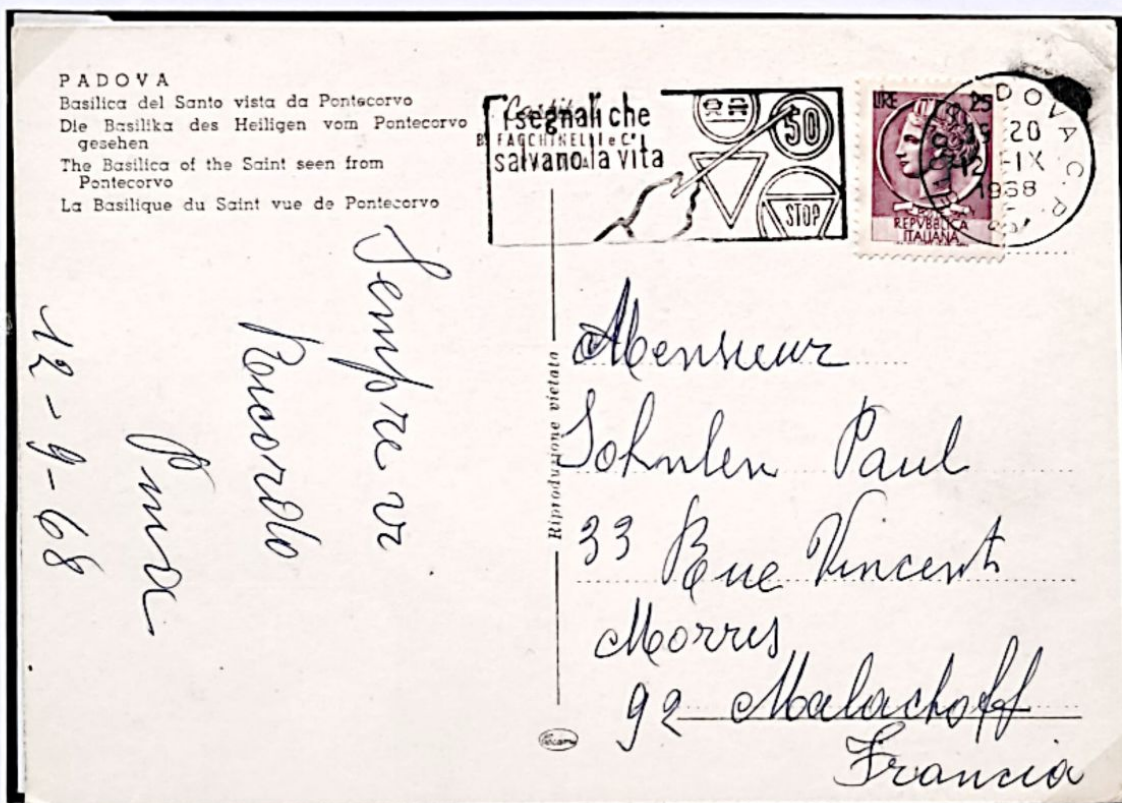 PADOVA
Basilica del Santo vista da Pontecorvo
Die Basilika des Heiligen vom Pontecorvo
gesehen
The Basilica of the Saint seen from
Pontecorvo
La Basilique du Saint vue de Pontecorvo
I segnali che
FACCHINELLI e C.
salvano la vita
50
STOP
LIRE 25
REPVBBLICA
ITALIANA
DOVA C.P.
20
12 IX
1968
Sempre vi
Ricordo
Pina
12-9-68
Riproduzione vietata
Monsieur
Sohnlen Paul
33 Rue Vincent
Morris
92 Malachoff
Francia